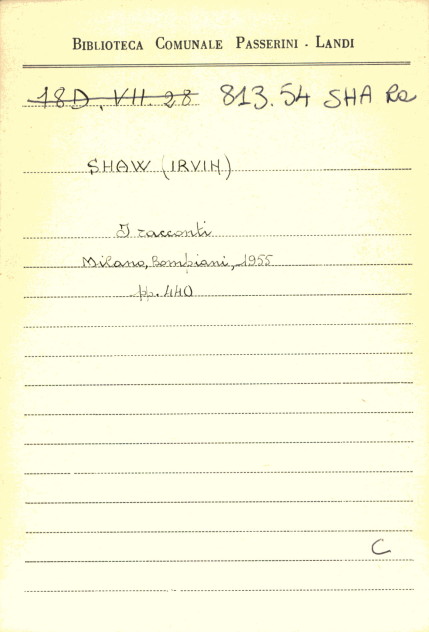 BIBLIOTECA COMUNALE PASSERINI - LANDI
18D. VII. 28 813.54 SHA Ra
SHAW (IRVIH)
I racconti
Milano, Bompiani, 1955
pp. 440
C